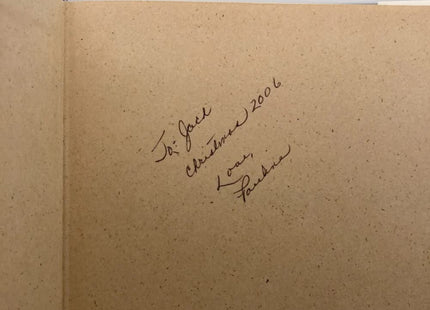 To: Jack
Christmas 2006
Love,
Pauline